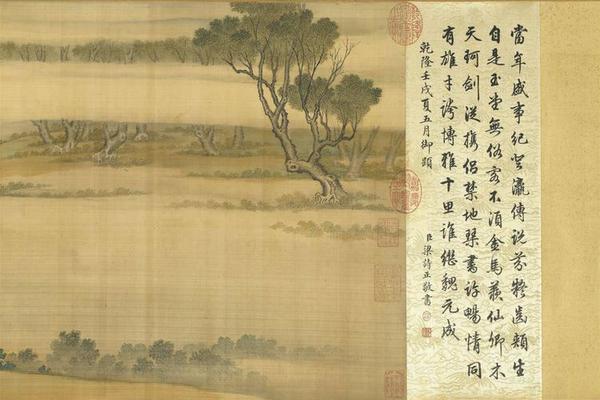 當年盛事紀登瀛傳說芬齒頰生
自是玉堂無俗客不須金馬羨仙卿木
天珂劍從携侶禁地琴書許暢情同
有雄才誇博雅十思誰繼魏元成
乾隆壬戌夏五月御題
臣梁詩正敬書